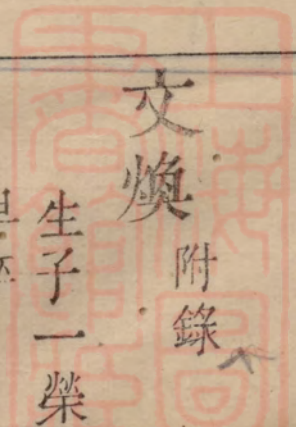 文煥
附錄
生子一榮
早卒